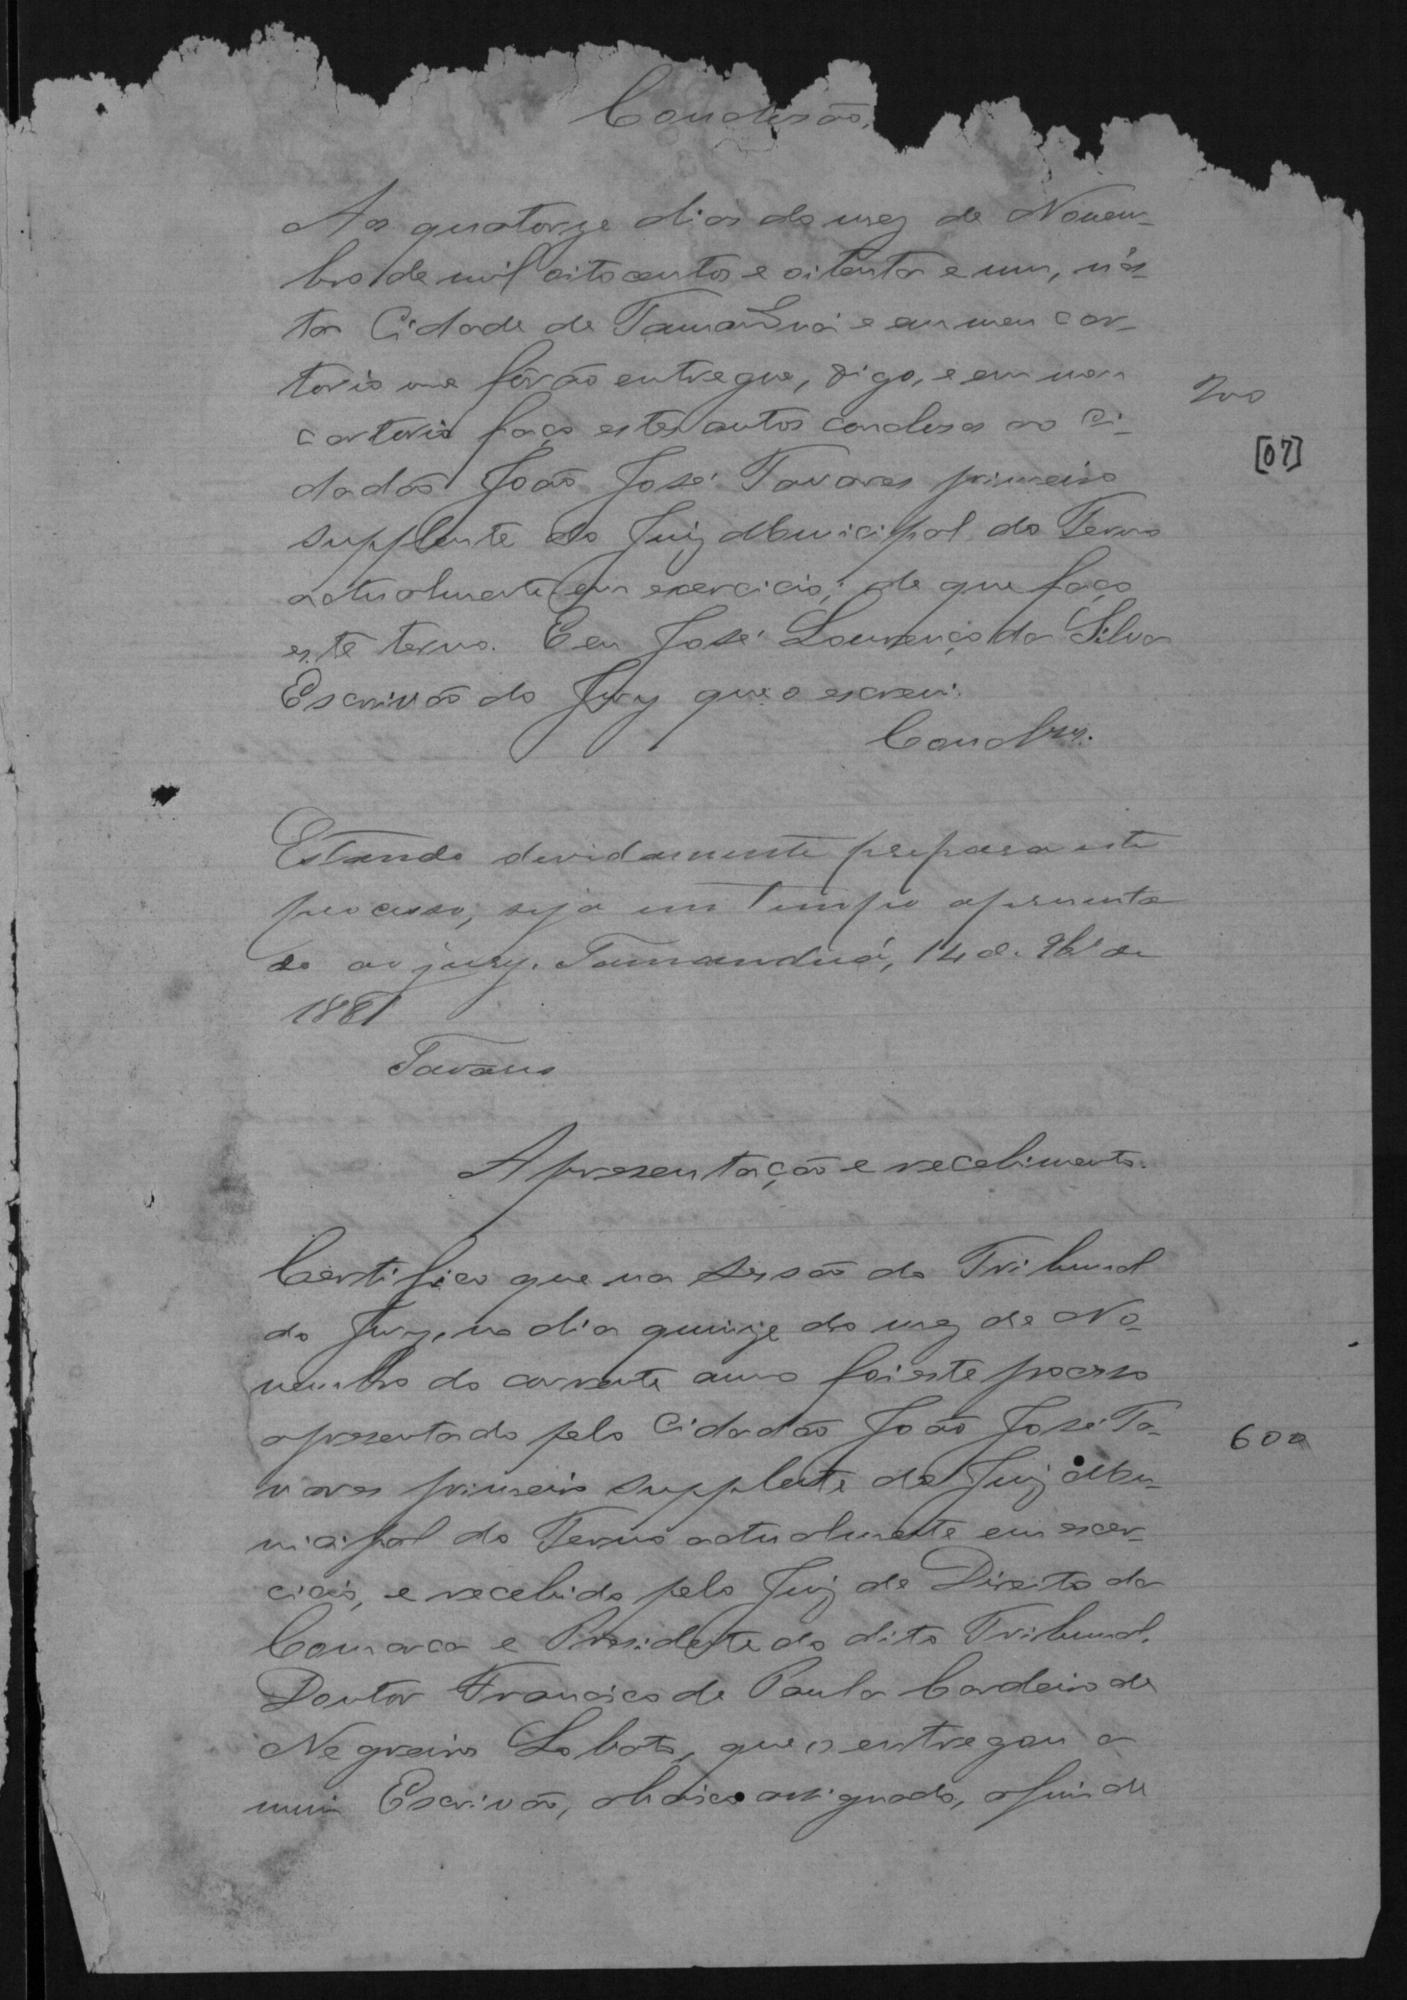 Conclusão.
Aos quatorze dias do mez de Novem-
bro de mil oito centos e oitenta e um, n'es-
ta Cidade de Tamanduá e em meu car-
torio me forão entregue, digo, e em meu
200
cartorio faço estes autos conclusos ao Ci-
[07]
dadão João José Tavares primeiro
supplente do Juiz Municipal do Termo
actualmente em exercicio; de que faço
este termo. E eu José Lourenço da Silva
Escrivão do Jury que o escrevi.
Conclsos.
Estando devidamente preparado este
processo, seja em tempo apresenta
do ao jury. Tamanduá, 14 de 9br̃o de
1881
Tavares
Apresentação e recebimento.
Certifico que na sessão do Tribunal
do Jury, no dia quinze do mez de No-
vembro do corrente anno foi este processo
apresentado pelo Cidadão João José Ta-
600
vares primeiro supplente do Juiz Mu-
nicipal do Termo actualmente em exer-
cicio, e recebido pelo Juiz de Direito da
Comarca e Presidente do dito Tribunal,
Doutor Francisco de Paula Cordeiro de
Negreiros Lobato, que o entregou a
mim Escrivão, abaixo assignado, afim de